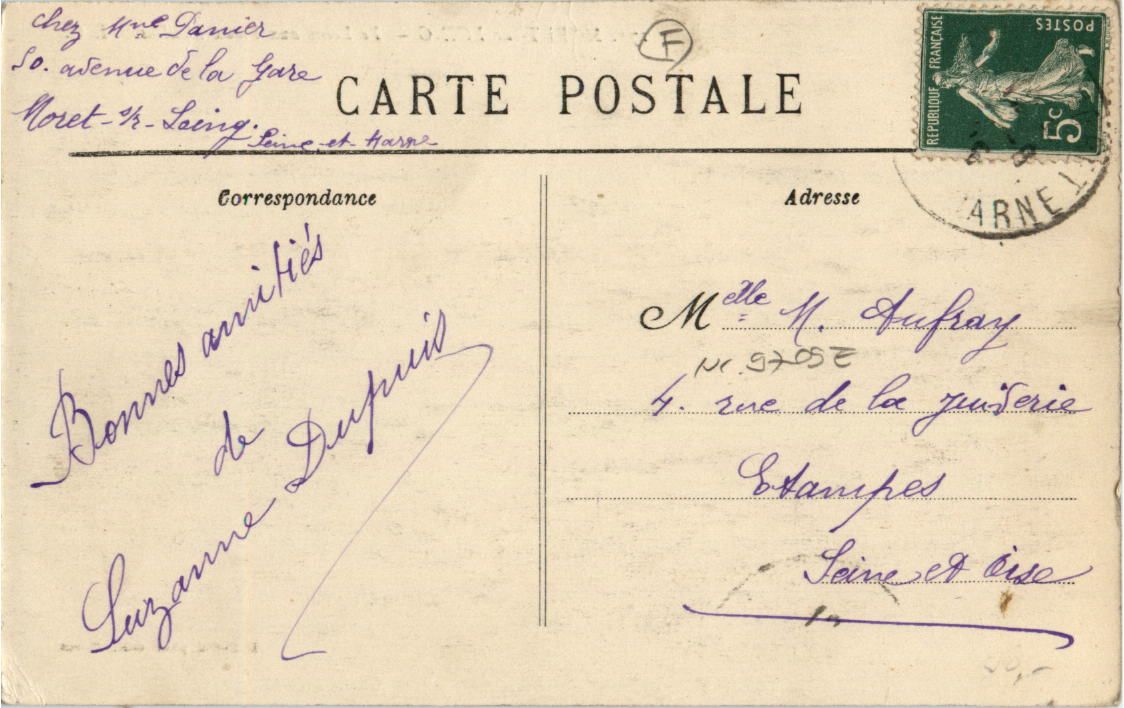 chez Mme Danier
50. avenue de la Gare
Moret-s/r-Loing.
Seine-et-Marne
F
CARTE POSTALE
RÉPUBLIQUE FRANÇAISE
POSTES
5c
ARNE
Correspondance
Adresse
Bonnes amitiés
de
Suzanne Dupuis
Melle M. Aufray
Nr. 9709Z
4. rue de la Juiverie
Etampes
Seine et Oise